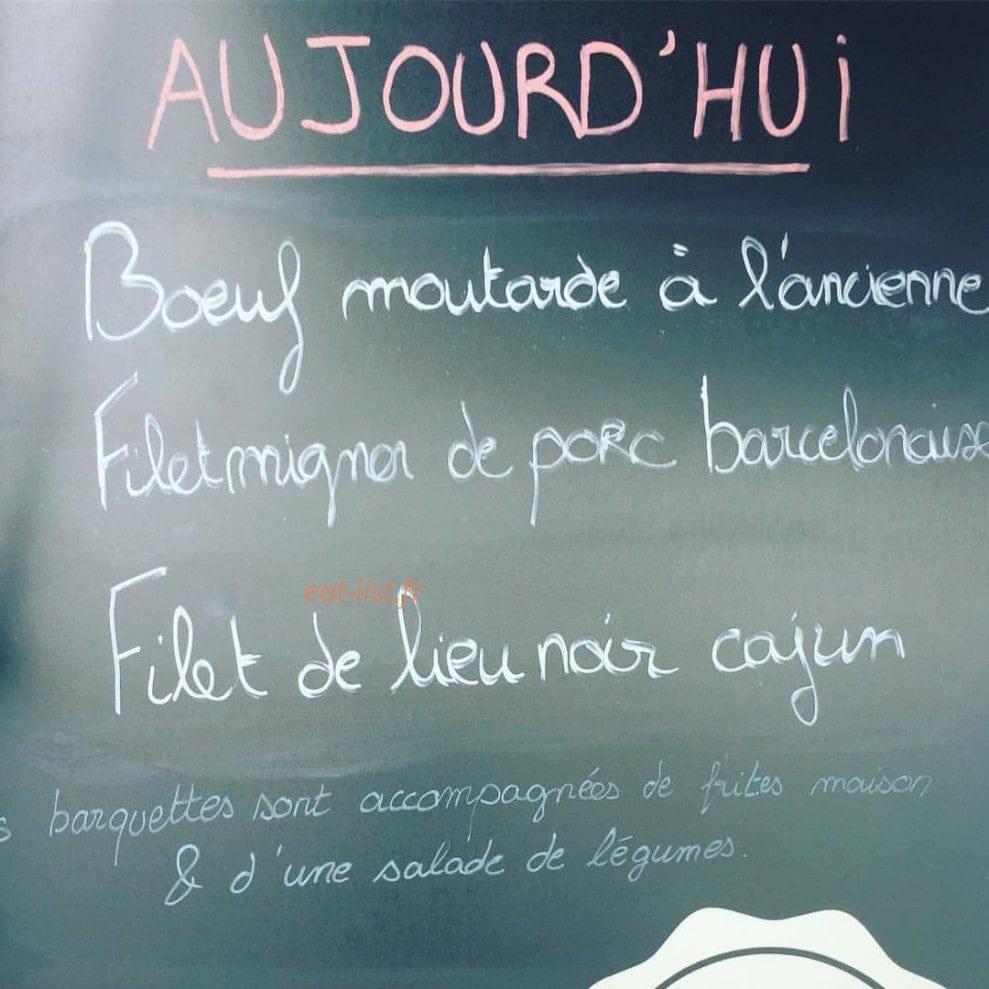 AUJOURD'HUi
Boeuf moutarde à l'ancienne
Filet mignon de porc barcelonaise
eat-list.fr
Filet de lieu noir cajun
barquettes sont accompagnées de frites maison
& d'une salade de légumes.